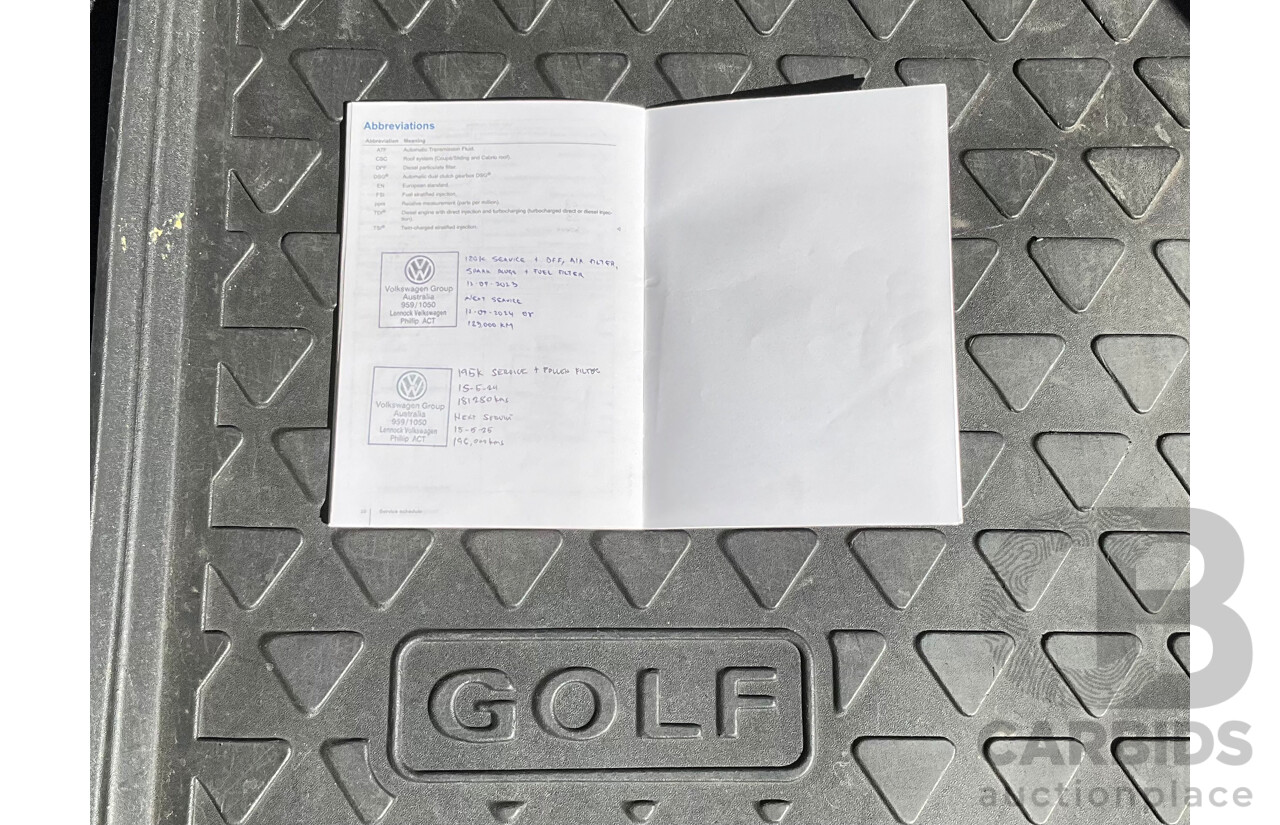 Abbreviations
Abbreviation Meaning
ATF Automatic Transmission Fluid.
CSC Roof system (Coupé/Sliding and Cabrio roof).
DPF Diesel particulate filter.
DSG® Automatic dual clutch gearbox DSG®
EN European standard.
FSI Fuel stratified injection.
ppm Relative measurement (parts per million).
TDI® Diesel engine with direct injection and turbocharging (turbocharged direct or diesel injec-
tion).
TSI® Twin-charged stratified injection.
Volkswagen Group
Australia
959/1050
Lennock Volkswagen
Phillip ACT
SERVICE + OFF, AIR FILTER,
SPARK PLUGS + FUEL FILTER
NEXT SERVICE
Volkswagen Group
Australia
959/1050
Lennock Volkswagen
Phillip ACT
195K SERVICE + POLLEN FILTER
15-5-24
NEXT
15-5-25
Service schedule
GOLF
B
CARBIDS
auctionplace